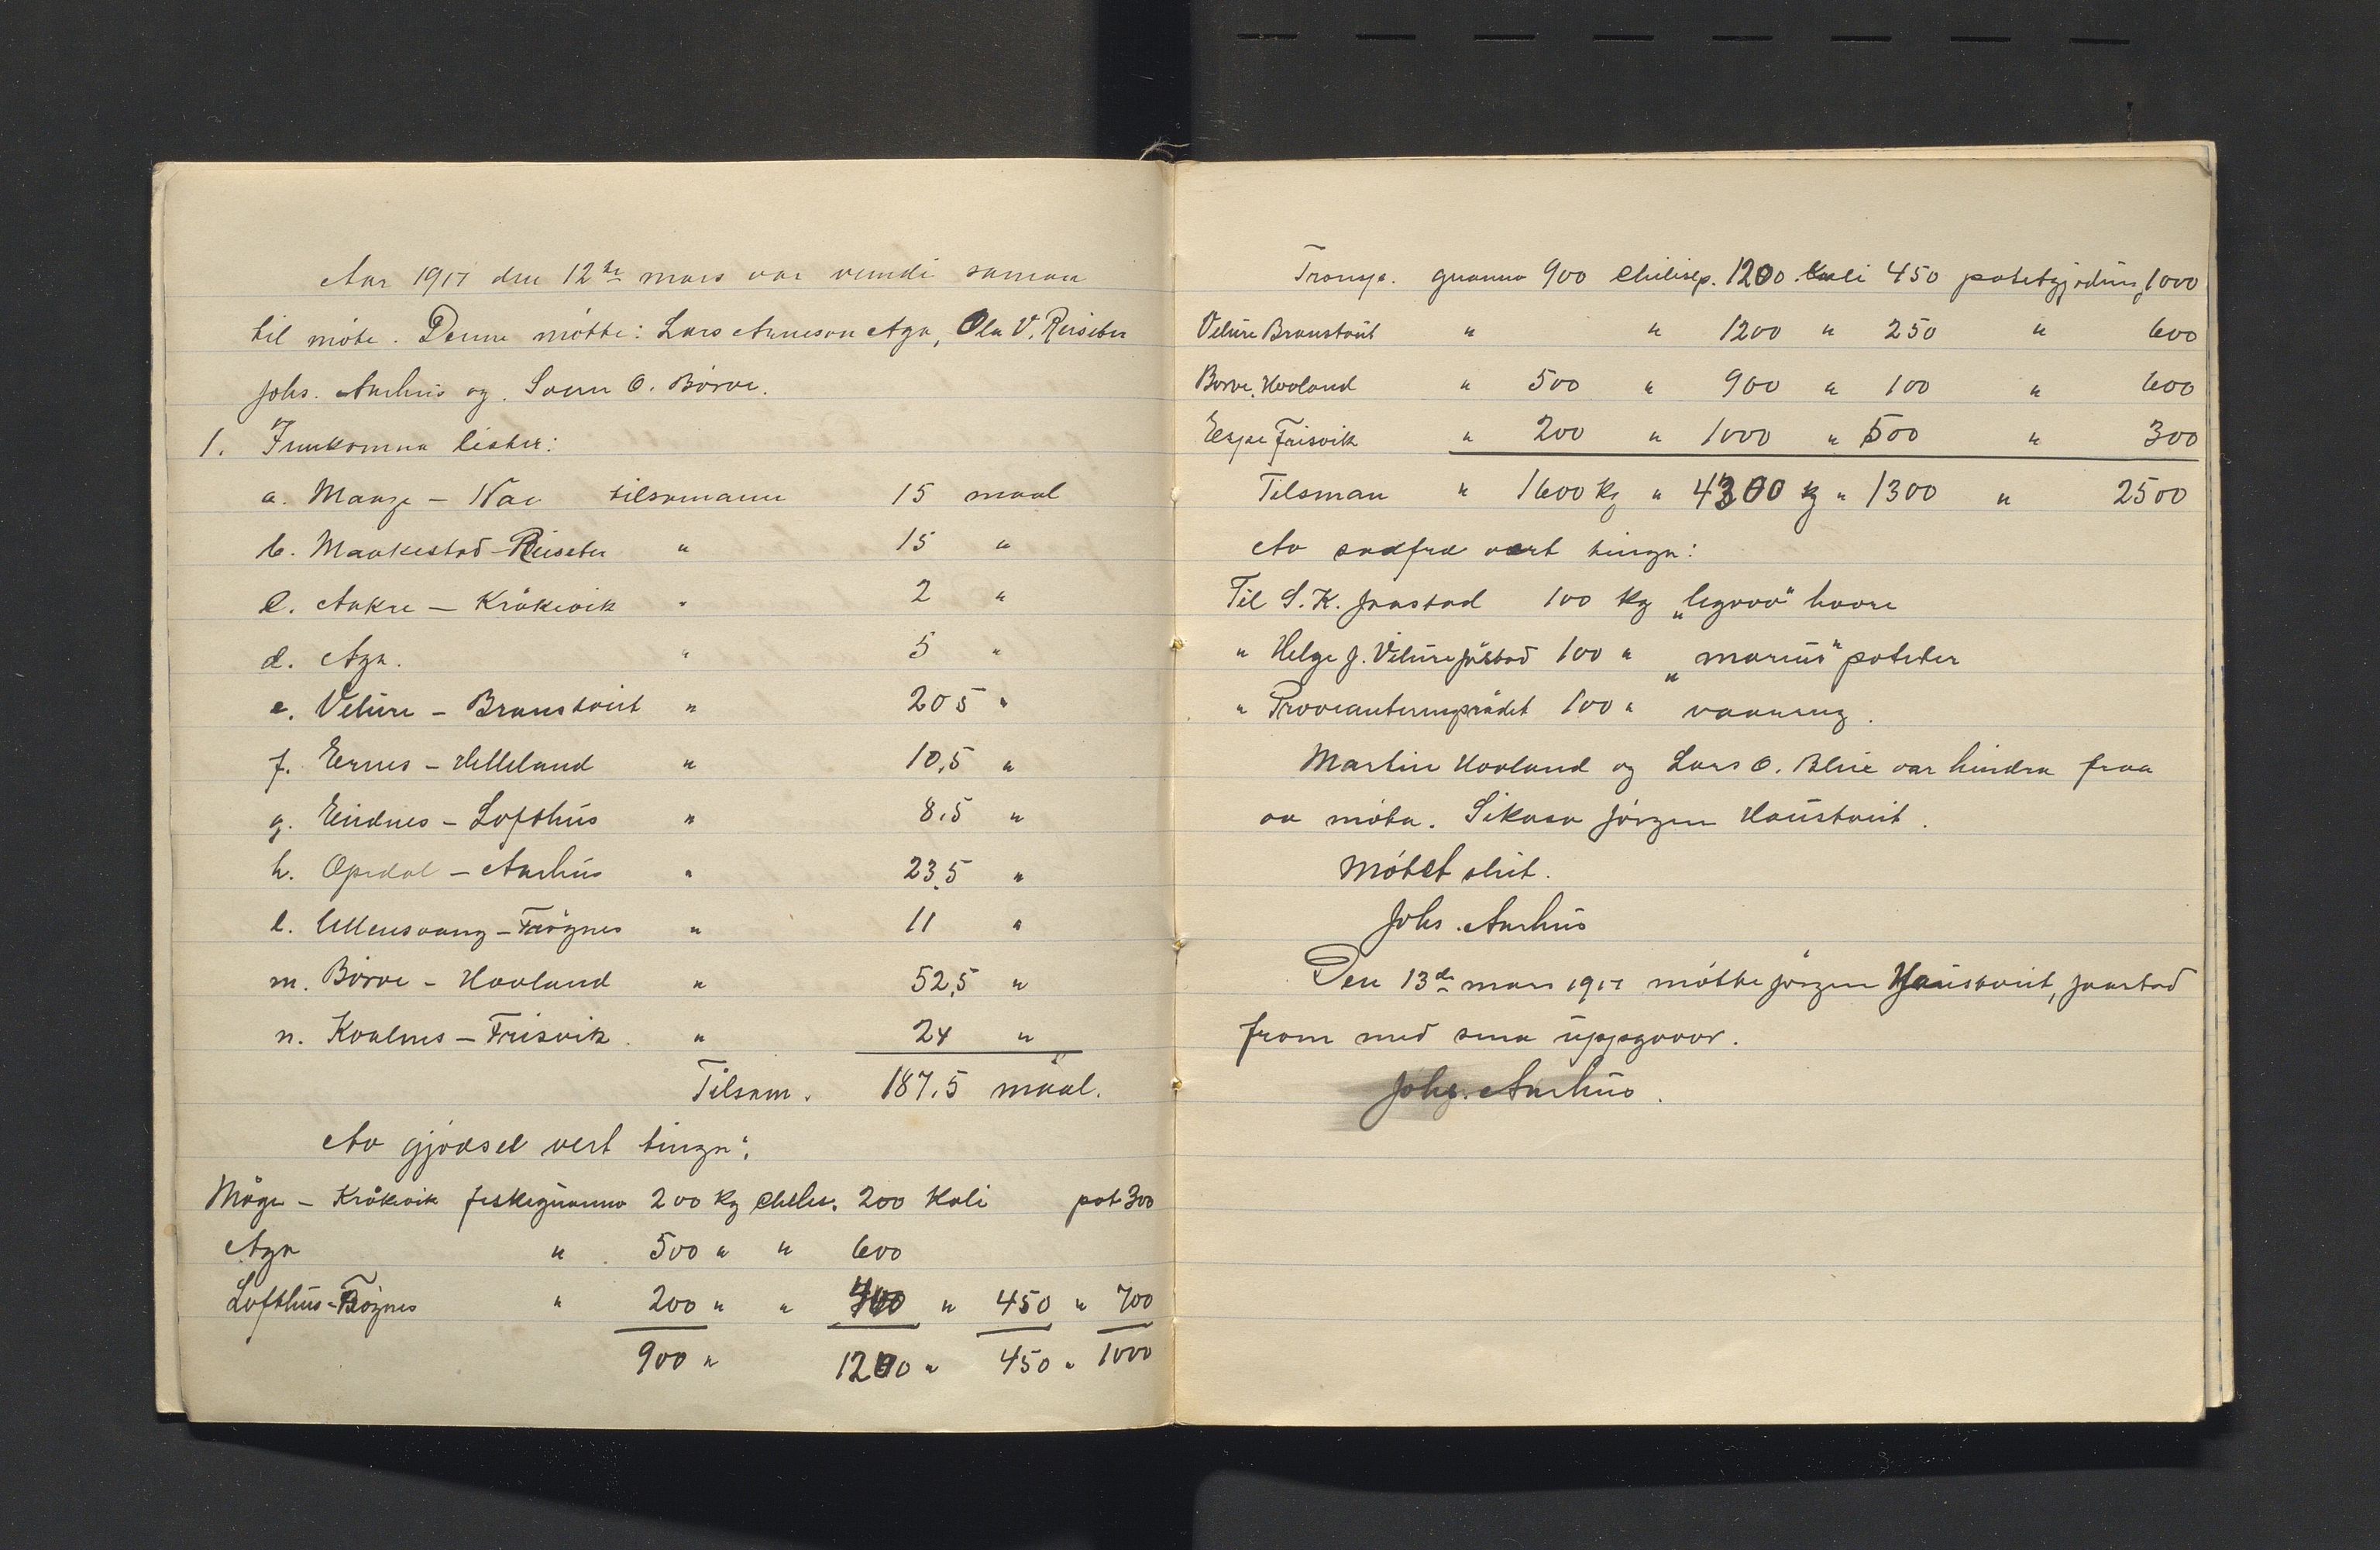 Aar 1917 den 12te mars var nemdi saman
til møte. Denne møtte: Lars Aameson Aga, Ola V. Reisæter
Johs. Aarhus og Svein O. Børve.
1. Innkomna lister:
a. Maage – Naa tilsamann 15 maal
b. Maakestad – Reisæter " 15 "
c. Aakre – Kråkevik " 2 "
d. Aga. " 5 "
e. Velure – Braustveit " 20 5 "
f. Ernes – Helleland " 10,5 "
g. Eidnes – Lofthus " 8,5 "
h. Opedal – Aarhus " 23,5 "
l. Ullensvang – Frøgnes " 11 "
m. Børve – Hovland " 52,5 "
n. Kvalnes – Freisvik " 24 "
Tilsam. 187,5 maal.
Av gjødsel vert tinga:
Måge – Kråkevik fiskeguanno 200 kg chiles. 200 Kali pot 300
Aga " 500 " " 600
Lofthus - Frøgnes " 200 " " 400 " 450 " 700
900 " 1200 " 450 " 1000
Transp. guanno 900 chilisp. 1200 kali 450 potetgjødning 1000
Velure Braustveit " " 1200 " 250 " 600
Børve, Hovland " 500 " 900 " 100 " 600
Espe Freisvik " 200 " 1000 " 500 " 300
Tilsman " 1600 kg " 4300 kg " 1300 " 2500
Av saafrø vert tinga:
Til S. K. Jaastad 100 kg "legovo" havre
" Helge J. Velure Jåstad 100 " "marius" poteter
" Provianteringsrådet 100 " vaarrug.
Martin Hovland og Lars O. Blie var hindra fraa
aa møta. Likasa Jørgen Haustveit.
Møtet slut.
Johs. Aarhus
Den 13de mars 1917 møtte Jørgen Haustveit, Jaastad
fram med sina uppgaavor.
Johs. Aarhus.